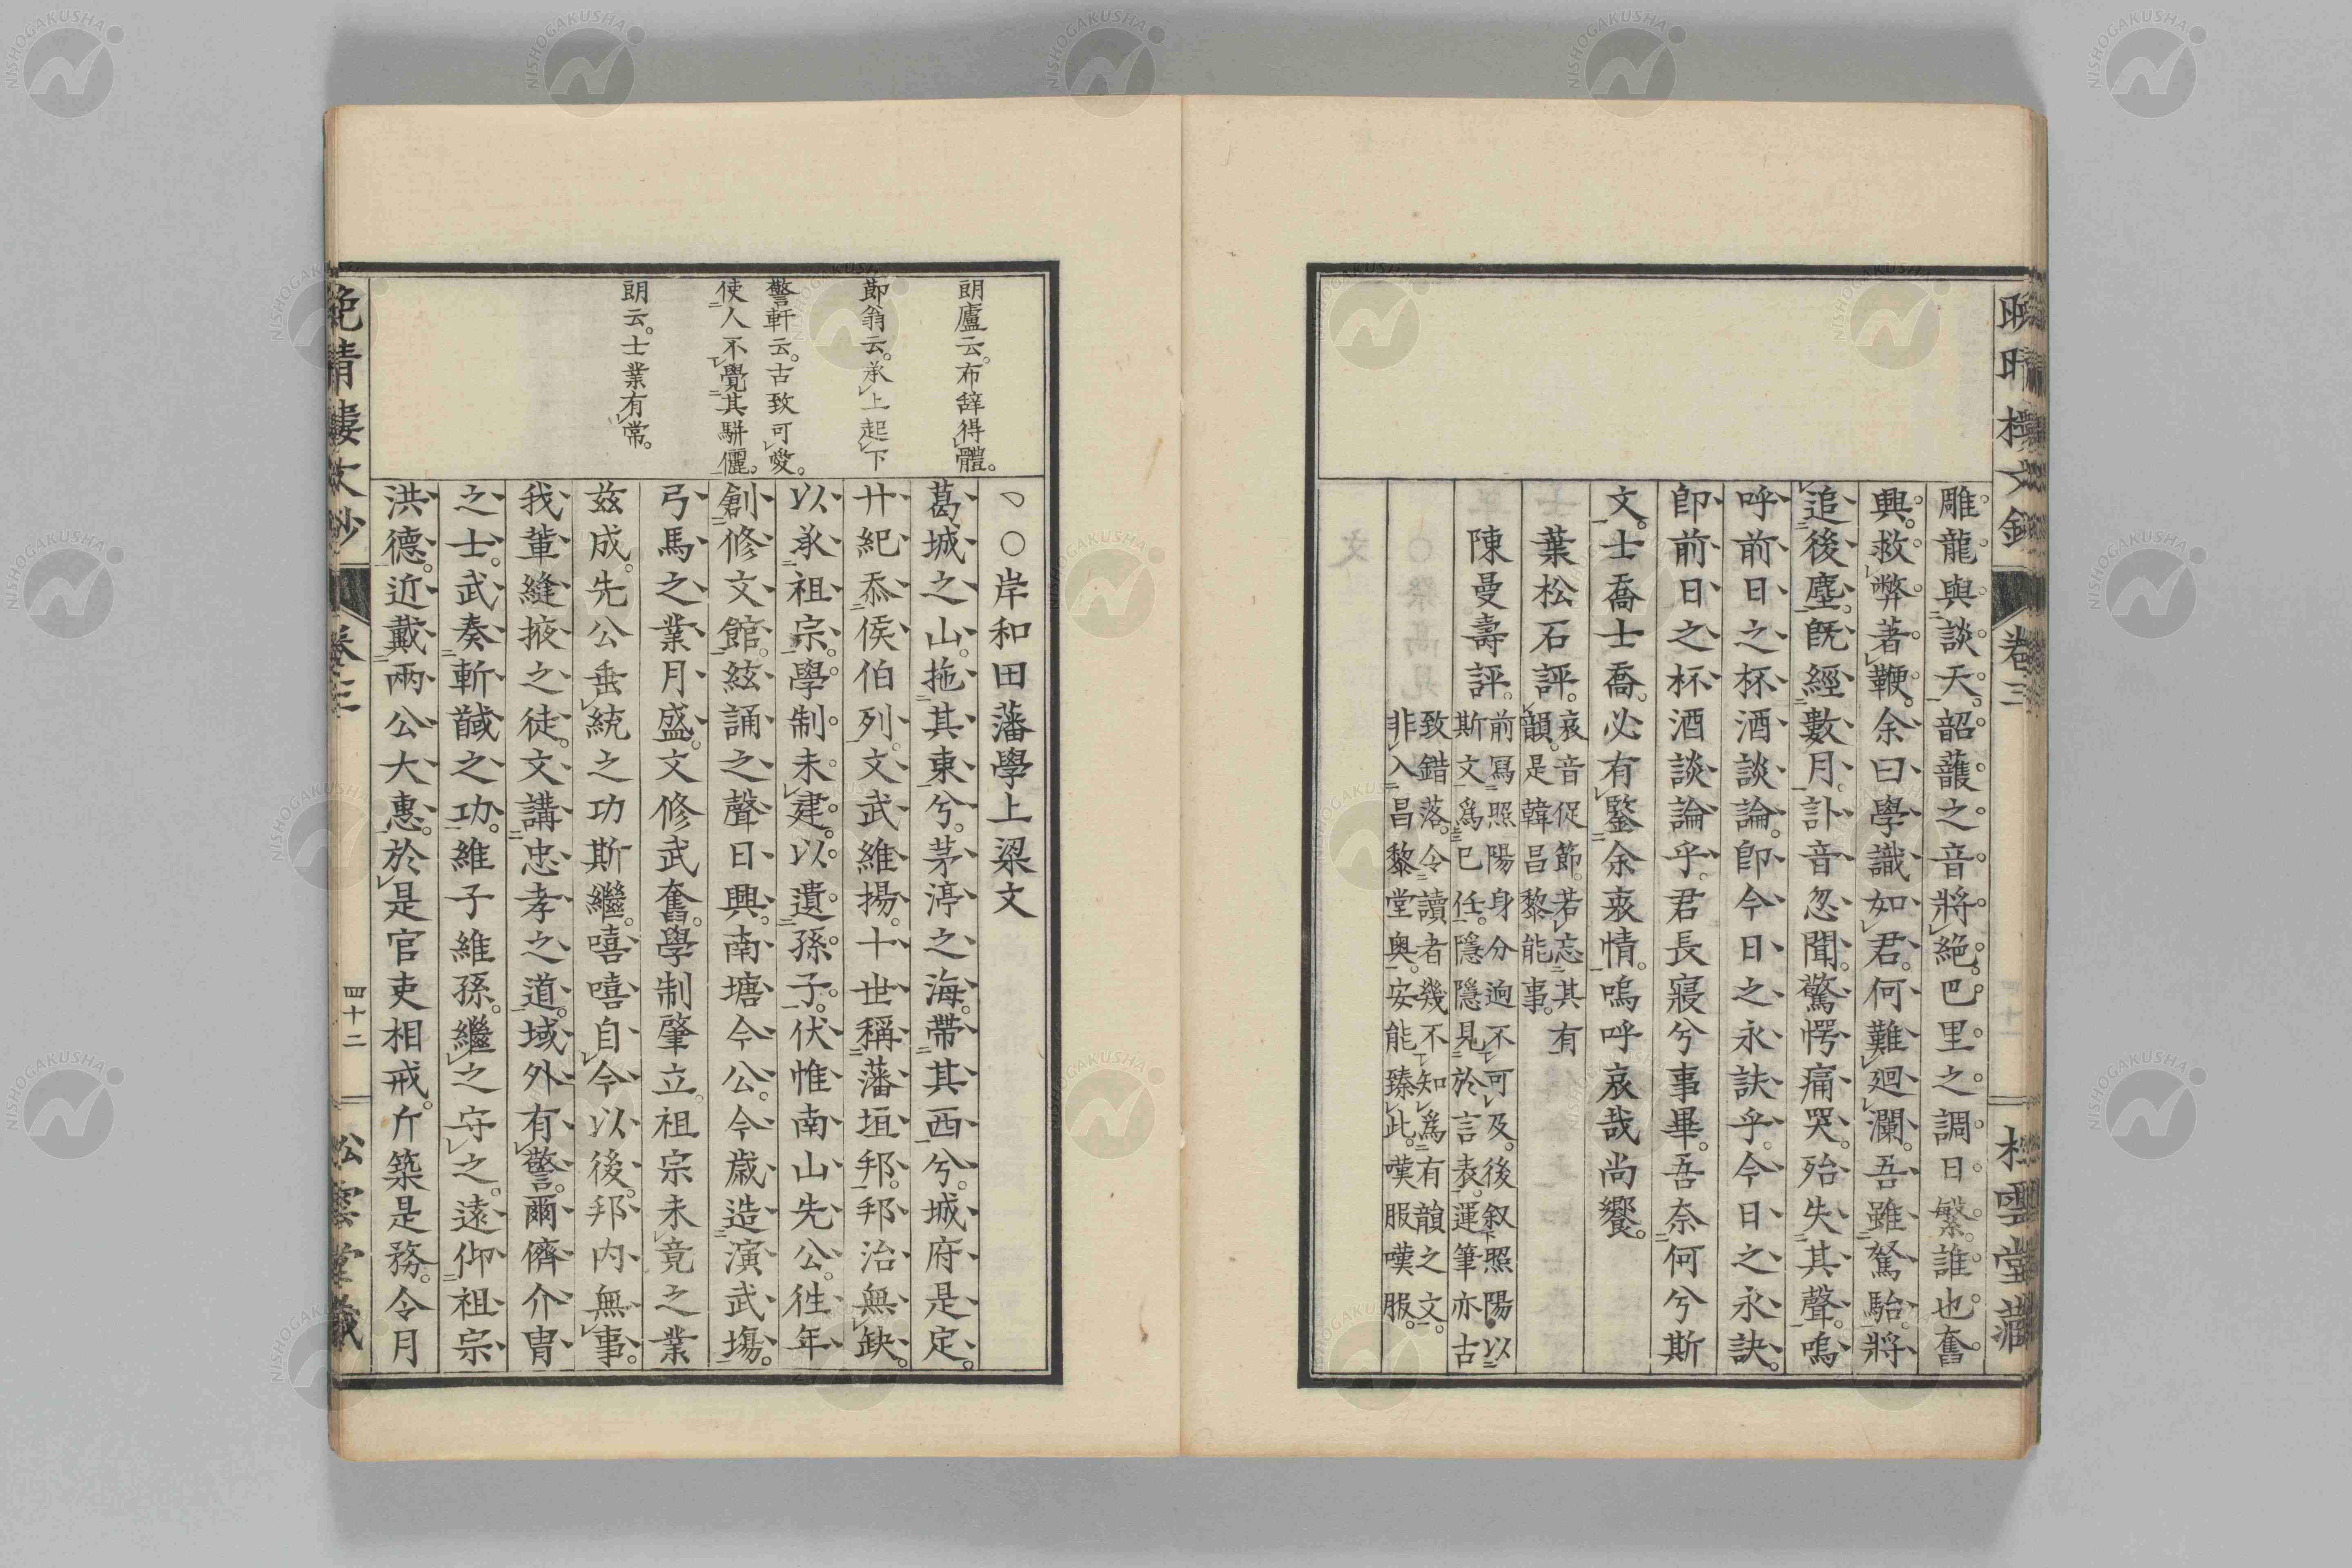 雕龍與談天。韶頀之音將絕。巴里之調日繁。誰也奮
興。救弊著鞭。余曰學識如君。何難廻瀾。吾雖駑駘。將
追後塵。旣經數月。訃音忽聞。驚愕痛哭。殆失其聲。嗚
呼前日之杯酒談論。卽今日之永訣乎。今日之永訣。
卽前日之杯酒談論乎。君長寢兮事畢。吾奈何兮斯
文。士喬士喬。必有鑒余哀情。嗚呼哀哉尚饗。
葉松石評。哀音促節。若忘其有
韻。是韓昌黎能事。
陳曼壽評。前寫照陽身分逈不可及。後叙照陽以
斯文爲己任。隱隱見於言表。運筆亦古
致錯落。令讀者幾不知爲有韻之文。
非入昌黎堂奧。安能臻此。嘆服嘆服。
卷三
松雲堂藏
朗廬云。布辭得體。
節翁云。承上起下
警軒云。古致可愛。
使人不覺其駢儷。
朗云。士業有常。
○岸和田藩學上梁文
葛城之山。拖其東兮。茅渟之海。帶其西兮。城府是定。
廿紀忝侯伯列。文武維揚。十世稱藩垣邦。邦治無缺。
以承祖宗。學制未建。以遺孫子。伏惟南山先公。往年
創修文館。絃誦之聲日興。南塘今公。今歲造演武場。
弓馬之業月盛。文修武奮。學制肇立。祖宗未竟之業
玆成。先公垂統之功斯繼。嘻嘻自今以後。邦内無事。
我輩縫掖之徒。文講忠孝之道。域外有警。爾儕介冑
之士。武奏斬馘之功。維子維孫。繼之守之。遠仰祖宗
洪德。近戴兩公大惠。於是官吏相戒。斤築是務。令月
晚晴樓文鈔
卷三
四十二
松雲堂藏